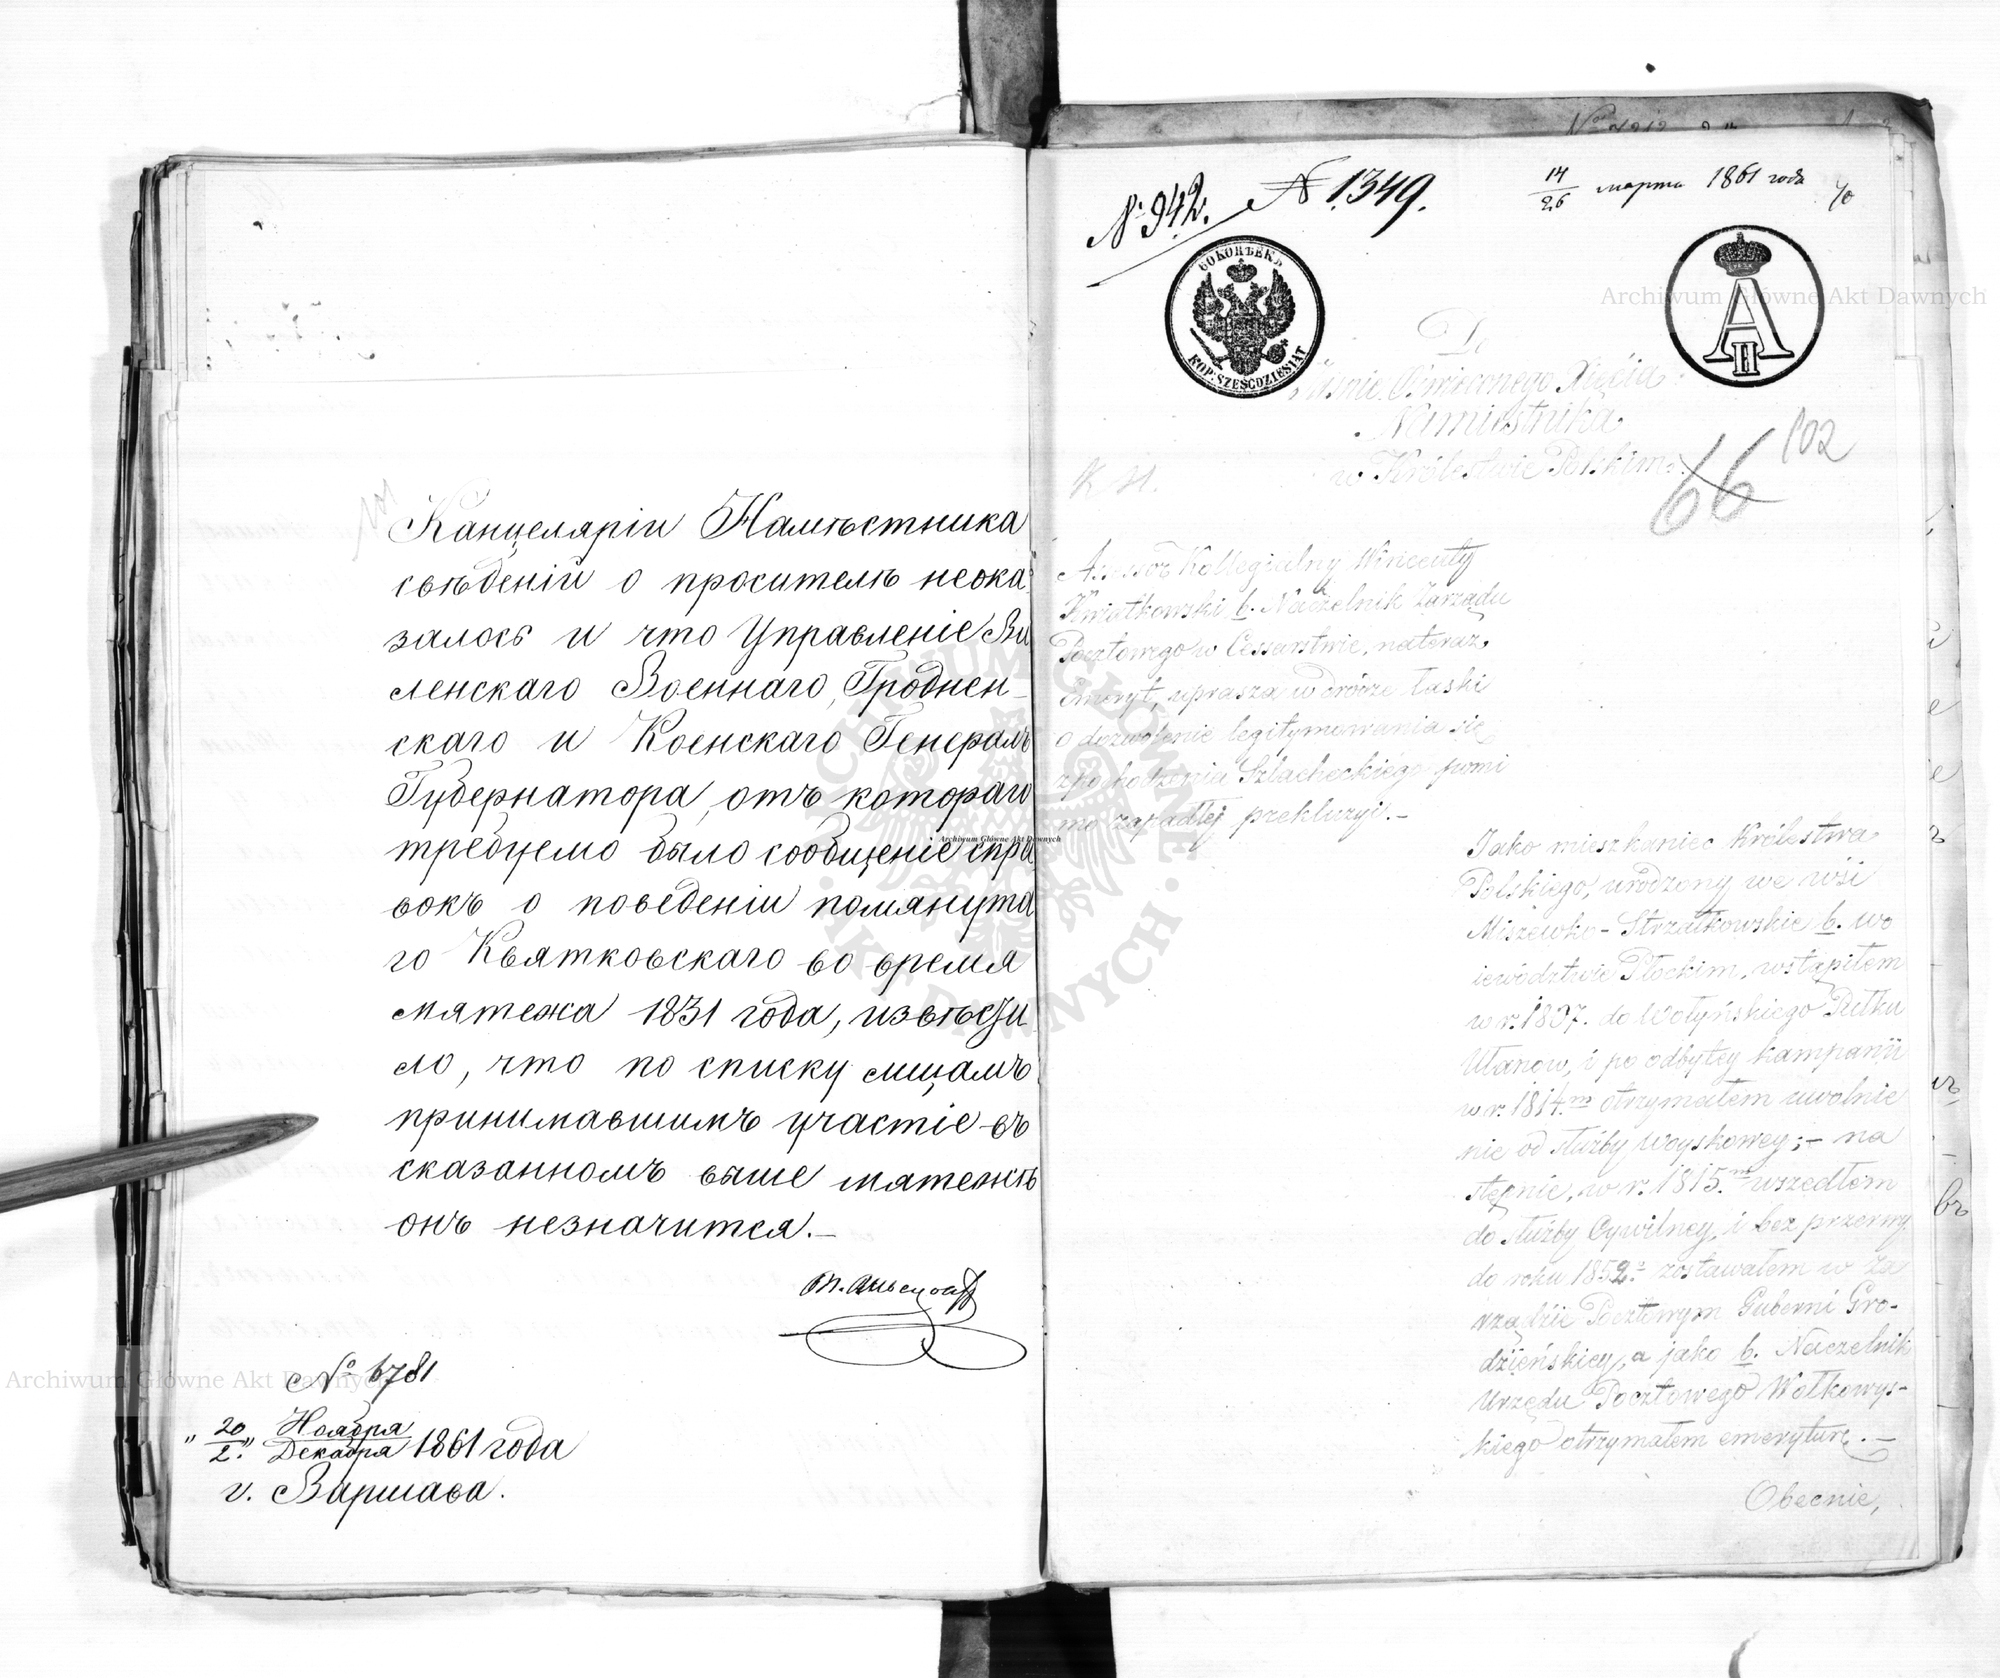 Канцеляріи Намѣстника
свѣденій о просителѣ неока
залось и что Управленіе Ви
ленскаго Военнаго, Гроднен-
скаго и Ковенскаго Генералъ
Губернатора, отъ котораго
требуемо было сообщеніе спра
вокъ о поведеніи помянута
го Квятковскаго во время
мятежа 1831 года, извѣсти
ло, что по списку лицамъ
принимавшимъ участіе въ
сказанномъ выше мятежѣ
онъ незначится.—
№ 6781
"20/2" Ноября/Декабря 1861 года
г. Варшава.
№ 942. № 1349.
14/26 марта 1861 года
60 КОПѢЕКЪ
KOP: SZEŚĆDZIESIĄT
А II
Do
Jaśnie Oświeconego Xięcia
Namiestnika
w Królestwie Polskim.
66 102
Assesor Kollegialny Wincenty
Kwiatkowski b. Naczelnik Zarządu
Pocztowego w Cessarstwie, nateraz
Emeryt, uprasza w drodze łaski
o dozwolenie legitymowania się
z pochodzenia Szlacheckiego pomi
mo zapadłej prekluzyi.—
Jako mieszkaniec Królestwa
Polskiego, urodzony we wsi
Miszewko-Strzałkowskie b. wo
iewództwie Płockim, wstąpiłem
w r. 1807. do Wołyńskiego Pułku
Ułanow, i po odbytey kampanii
w r. 1814.m otrzymałem uwolnie
nie od służby woyskowey;— na
stępnie, w r. 1815.m wszedłem
do służby Cywilney, i bez przerwy
do roku 1852. zostawałem w Za
rządzie Pocztowym Guberni Gro-
dzieńskiey, a jako b. Naczelnik
Urzędu Pocztowego Wołkowys-
kiego otrzymałem emeryturę.—
Obecnie,
Archiwum Główne Akt Dawnych
Archiwum Główne Akt Dawnych
Archiwum Główne Akt Dawnych
ARCHIWUM GŁÓWNE · AKT DAWNYCH ·